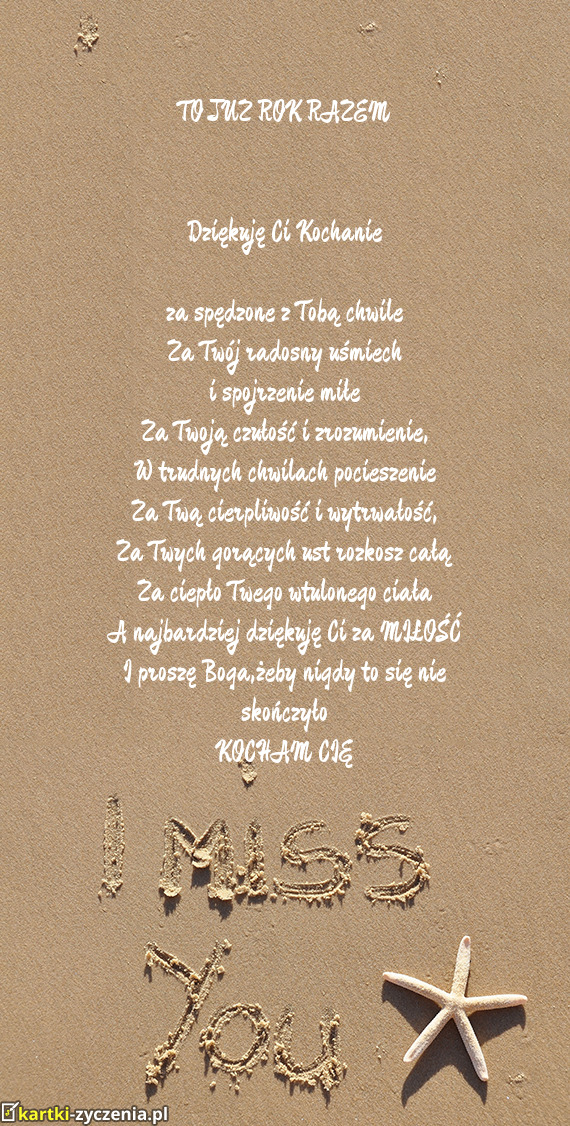 TO JUZ ROK RAZEM
Dziękuję Ci Kochanie
za spędzone z Tobą chwile
Za Twój radosny uśmiech
i spojrzenie miłe
Za Twoją czułość i zrozumienie,
W trudnych chwilach pocieszenie
Za Twą cierpliwość i wytrwałość,
Za Twych gorących ust rozkosz całą
Za ciepło Twego wtulonego ciała
A najbardziej dziękuję Ci za MIŁOŚĆ
I proszę Boga,żeby nigdy to się nie
skończyło
KOCHAM CIĘ
I miss
You
kartki-zyczenia.pl